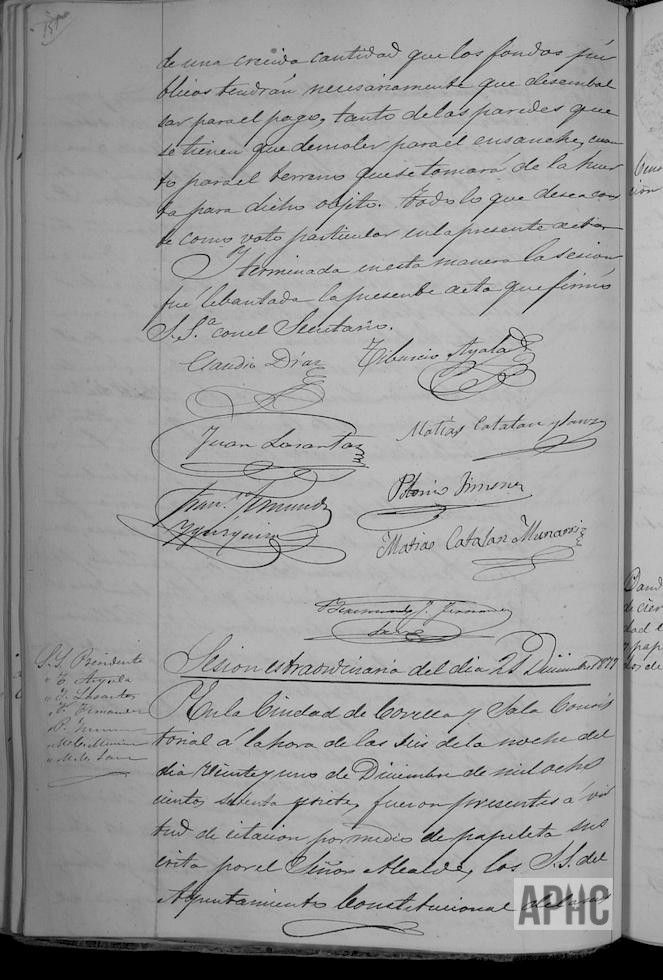 151
de una crecida cantidad que los fondos pú
blicos tendrán necesariamente que desembol
sar para el pago, tanto de las paredes que
se tienen que demoler para el ensanche, cuan
to para el terreno que se tomará de la huer
ta para dicho objeto. Todo lo que desea cons
te como voto particular en la presente acta
Y terminada en esta manera la sesion
fué lebantada la presente acta que firmó
S.S.ª con el Secretario.
Claudio Díaz
Tiburcio Ayala
Juan Lasantas
Matías Catalan y Sanz
Fran.co Fernandz
Yzquierdo
Jimenez
Matias Catalan Munarriz
Raimundo J. Fernandez
Sesion estraordinaria del dia 21 Diciembre 1877
S.S. Presidente
" T. Ayala
" J. Lasantas
" F. Fernandez
" M. C. Sanz
En la Ciudad de Corella y Sala Consis
torial á la hora de las seis de la noche del
dia veinte y uno de Diciembre de mil ocho
cientos setenta y siete, fueron presentes á vir
tud de citacion por medio de papeleta sus
crita por el Señor Alcalde, los S.S. del
Ayuntamiento Constitucional
APHC